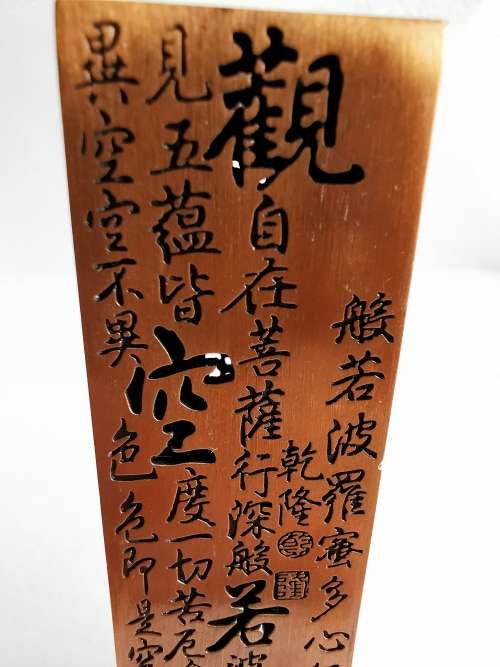 般若波羅蜜多心
乾隆
觀自在菩薩行深般若波
見五蘊皆空度一切苦厄
異空空不異色色即是空